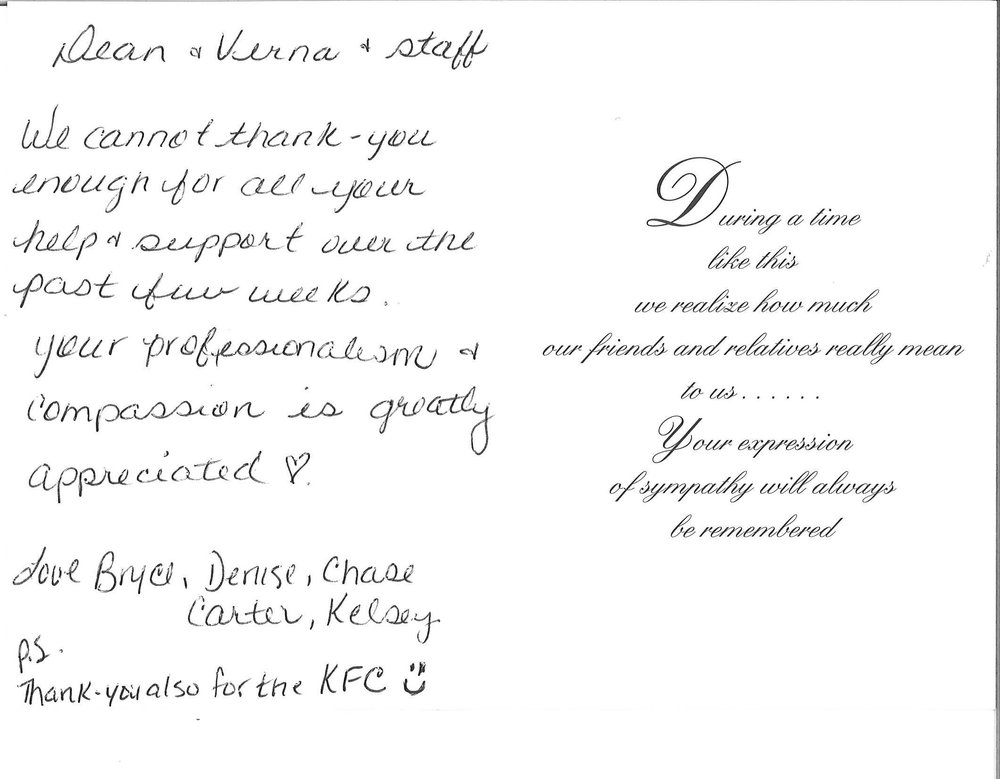 Dean & Verna & staff
We cannot thank-you
enough for all your
help & support over the
past few weeks.
your professionalism &
compassion is greatly
appreciated ♡.
Love Bryce, Denise, Chase
Carter, Kelsey
P.S.
Thank-you also for the KFC ☺
During a time
like this
we realize how much
our friends and relatives really mean
to us......
Your expression
of sympathy will always
be remembered